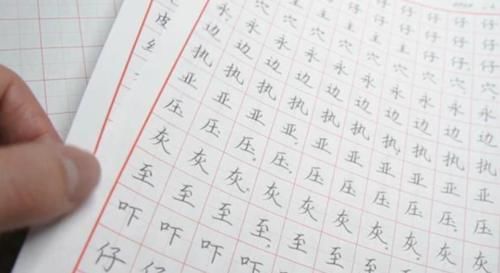 皮
丝
仔 仔 仔 仔 仔 仔
主 主 主 主 主 主 主
穴 穴 穴 穴 穴 穴 穴 穴
永 永 永 永 永 永 永 永 永
边 边 边 边 边 边 边 边 边 边
执 执 执 执 执 执 执 执 执 执
亚 亚 亚 亚 亚 亚 亚 亚 亚 亚
压 压 压 压 压 压 压 压 压 压
灰 灰 灰 灰 灰 灰 灰 灰 灰 灰
至 至 至 至 至 至 至 至 至
吓 吓 吓 吓 吓 吓 吓
仔 仔